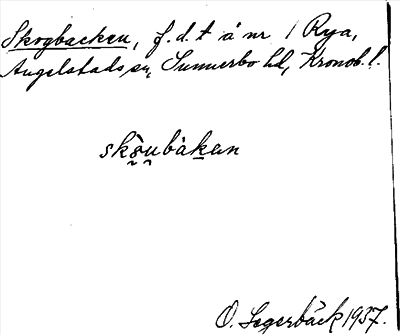 Skogbacken, f.d.t å nr 1 Rya,
Angelstads sn, Sunnerbo hd, Kronob. l.
skòubàkan
O. Segerbäck 1937.